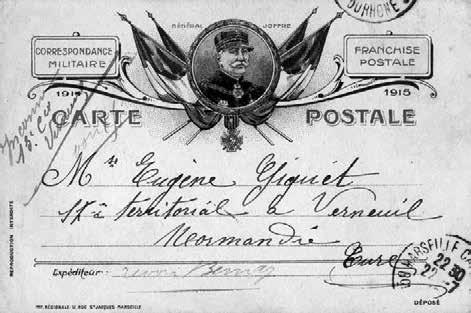 GÉNÉRAL JOFFRE
CORRESPONDANCE
MILITAIRE
FRANCHISE
POSTALE
1914
1915
CARTE POSTALE
Mr Eugène Giguet
territorial à Verneuil
Normandie
Eure
Expéditeur:
MARSEILLE
22 30
22 -7
REPRODUCTION INTERDITE
IMP. RÉGIONALE U. RUE ST JACQUES MARSEILLE
DÉPOSÉ